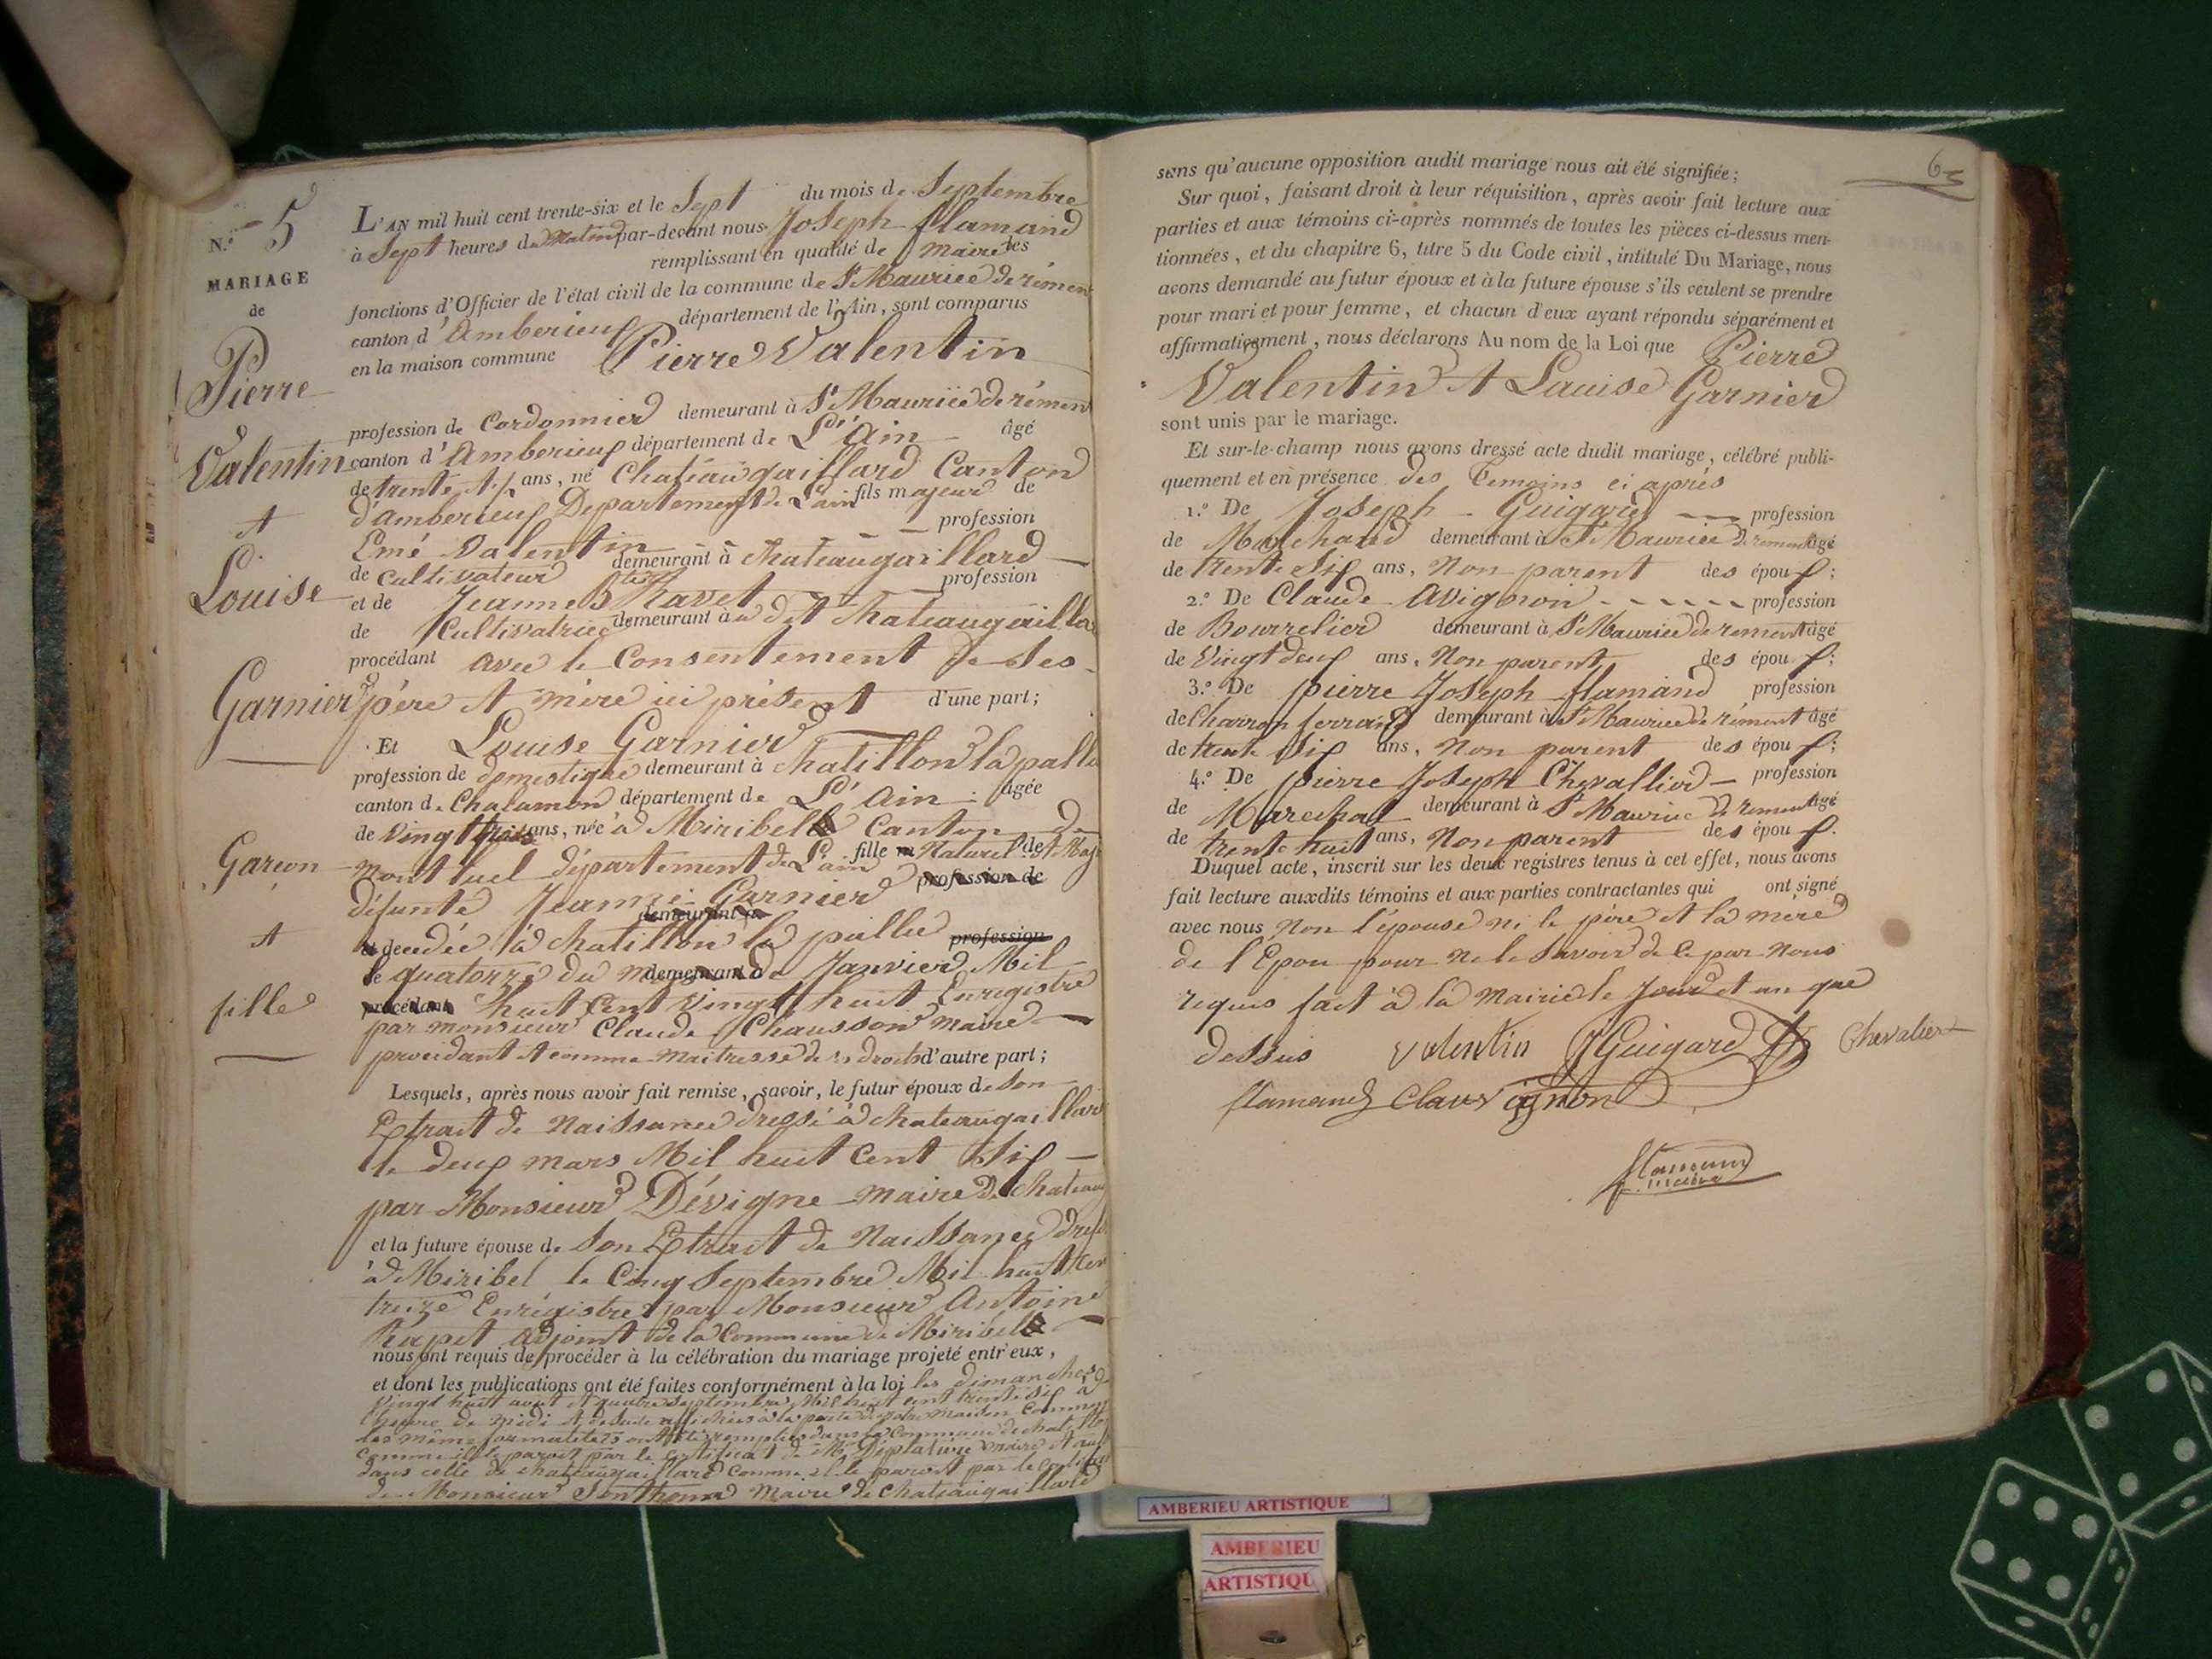 N.° 5
MARIAGE
de
Pierre
Valentin
et
Louise
Garnier
Garçon
et
fille
L'AN mil huit cent trente-six et le Sept du mois de Septembre
à Sept heures du Matin par-devant nous Joseph flamand
remplissant en qualité de maire les
fonctions d'Officier de l'état civil de la commune de St Maurice de rémens
canton d'Amberieux département de l'Ain, sont comparus
en la maison commune Pierre Valentin
profession de Cordonnier demeurant à St Maurice de rémens
canton d'Amberieux département de L'Ain âgé
de trente ans, né Chateaugaillard Canton
d'amberieux Departement de L'ain fils majeur de
Emé Valentin profession
de cultivateur demeurant à chateaugaillard
et de Jeanne Ravet profession
de Cultivatrice demeurant à dt Chateaugailla
procédant avec le Consentement de Ses
père et mère ici présent d'une part;
Et Louise Garnier
profession de domestique demeurant à chatillon la palla
canton de Chalamon département de L'Ain âgée
de vingt trois ans, née à Miribel Canton de
montluel département de L'ain fille Naturel et Maj
de
défunte Jeanne Garnier profession de
demeurant à
et decedée à chatillon la pallue profession
le quatorze du mois de Janvier Mil
demeurant à
procédant huit Cent vingt huit Enregistré
par monsieur Claude Chausson maire
procédant et comme maitresse de ses droits d'autre part;
Lesquels, après nous avoir fait remise, savoir, le futur époux de son
Extrait de Naissance dressé à chateaugaillard
le deux mars Mil huit Cent Six
par Monsieur Dévigne maire de chateau
et la future épouse de Son Extrait de Naissance dres
à Miribel le Cinq Septembre Mil huit Cen
treize Enrégistré par Monsieur Antoine
adjoint de la Commune de Miribel
nous ont requis de procéder à la célébration du mariage projeté entr'eux,
et dont les publications ont été faites conformément à la loi les dimanches
vingt huit aout et quatre Septembre Mil huit cent trente six à
l'heure de midi et de suite affichées à la porte de notre maison Commun
les même formalitées ont été remplies dans la Commune de chatillo
comme il le paroit par le certificat de Mr Déplatière maire
dans celle de chateaugaillard Comme il le paroit par le certificat
de Monsieur maire de chateaugaillard
63
sans qu'aucune opposition audit mariage nous ait été signifiée;
Sur quoi, faisant droit à leur réquisition, après avoir fait lecture aux
parties et aux témoins ci-après nommés de toutes les pièces ci-dessus men-
tionnées, et du chapitre 6, titre 5 du Code civil, intitulé Du Mariage, nous
avons demandé au futur époux et à la future épouse s'ils veulent se prendre
pour mari et pour femme, et chacun d'eux ayant répondu séparément et
affirmativement, nous déclarons Au nom de la Loi que Pierre
Valentin et Louise Garnier
sont unis par le mariage.
Et sur-le-champ nous avons dressé acte dudit mariage, célébré publi-
quement et en présence des Temoins ci après
1.° De Joseph Guigard profession
de Marchand demeurant à St Maurice de rémens âgé
de trente Six ans, Non parent des époux;
2.° De Claude Avignon profession
de Bourrelier demeurant à St Maurice de rement âgé
de vingt deux ans, Non parent des époux;
3.° De pierre Joseph flamand profession
de Charron ferrand demeurant à St Maurice de rément âgé
de trente Six ans, Non parent des époux;
4.° De pierre Joseph Chevallier profession
de Marechal demeurant à St Maurice de rement âgé
de trente huit ans, Non parent des époux.
Duquel acte, inscrit sur les deux registres tenus à cet effet, nous avons
fait lecture auxdits témoins et aux parties contractantes qui ont signé
avec nous Non l'épouse ni le père et la mère
de l'Epou pour ne le Savoir de ce par Nous
requis fait à la Mairie le jour et an que
dessus valentin JGuigard Chevalier
flamand
flamand
maire
AMBERIEU ARTISTIQUE
AMBERIEU
ARTISTIQU